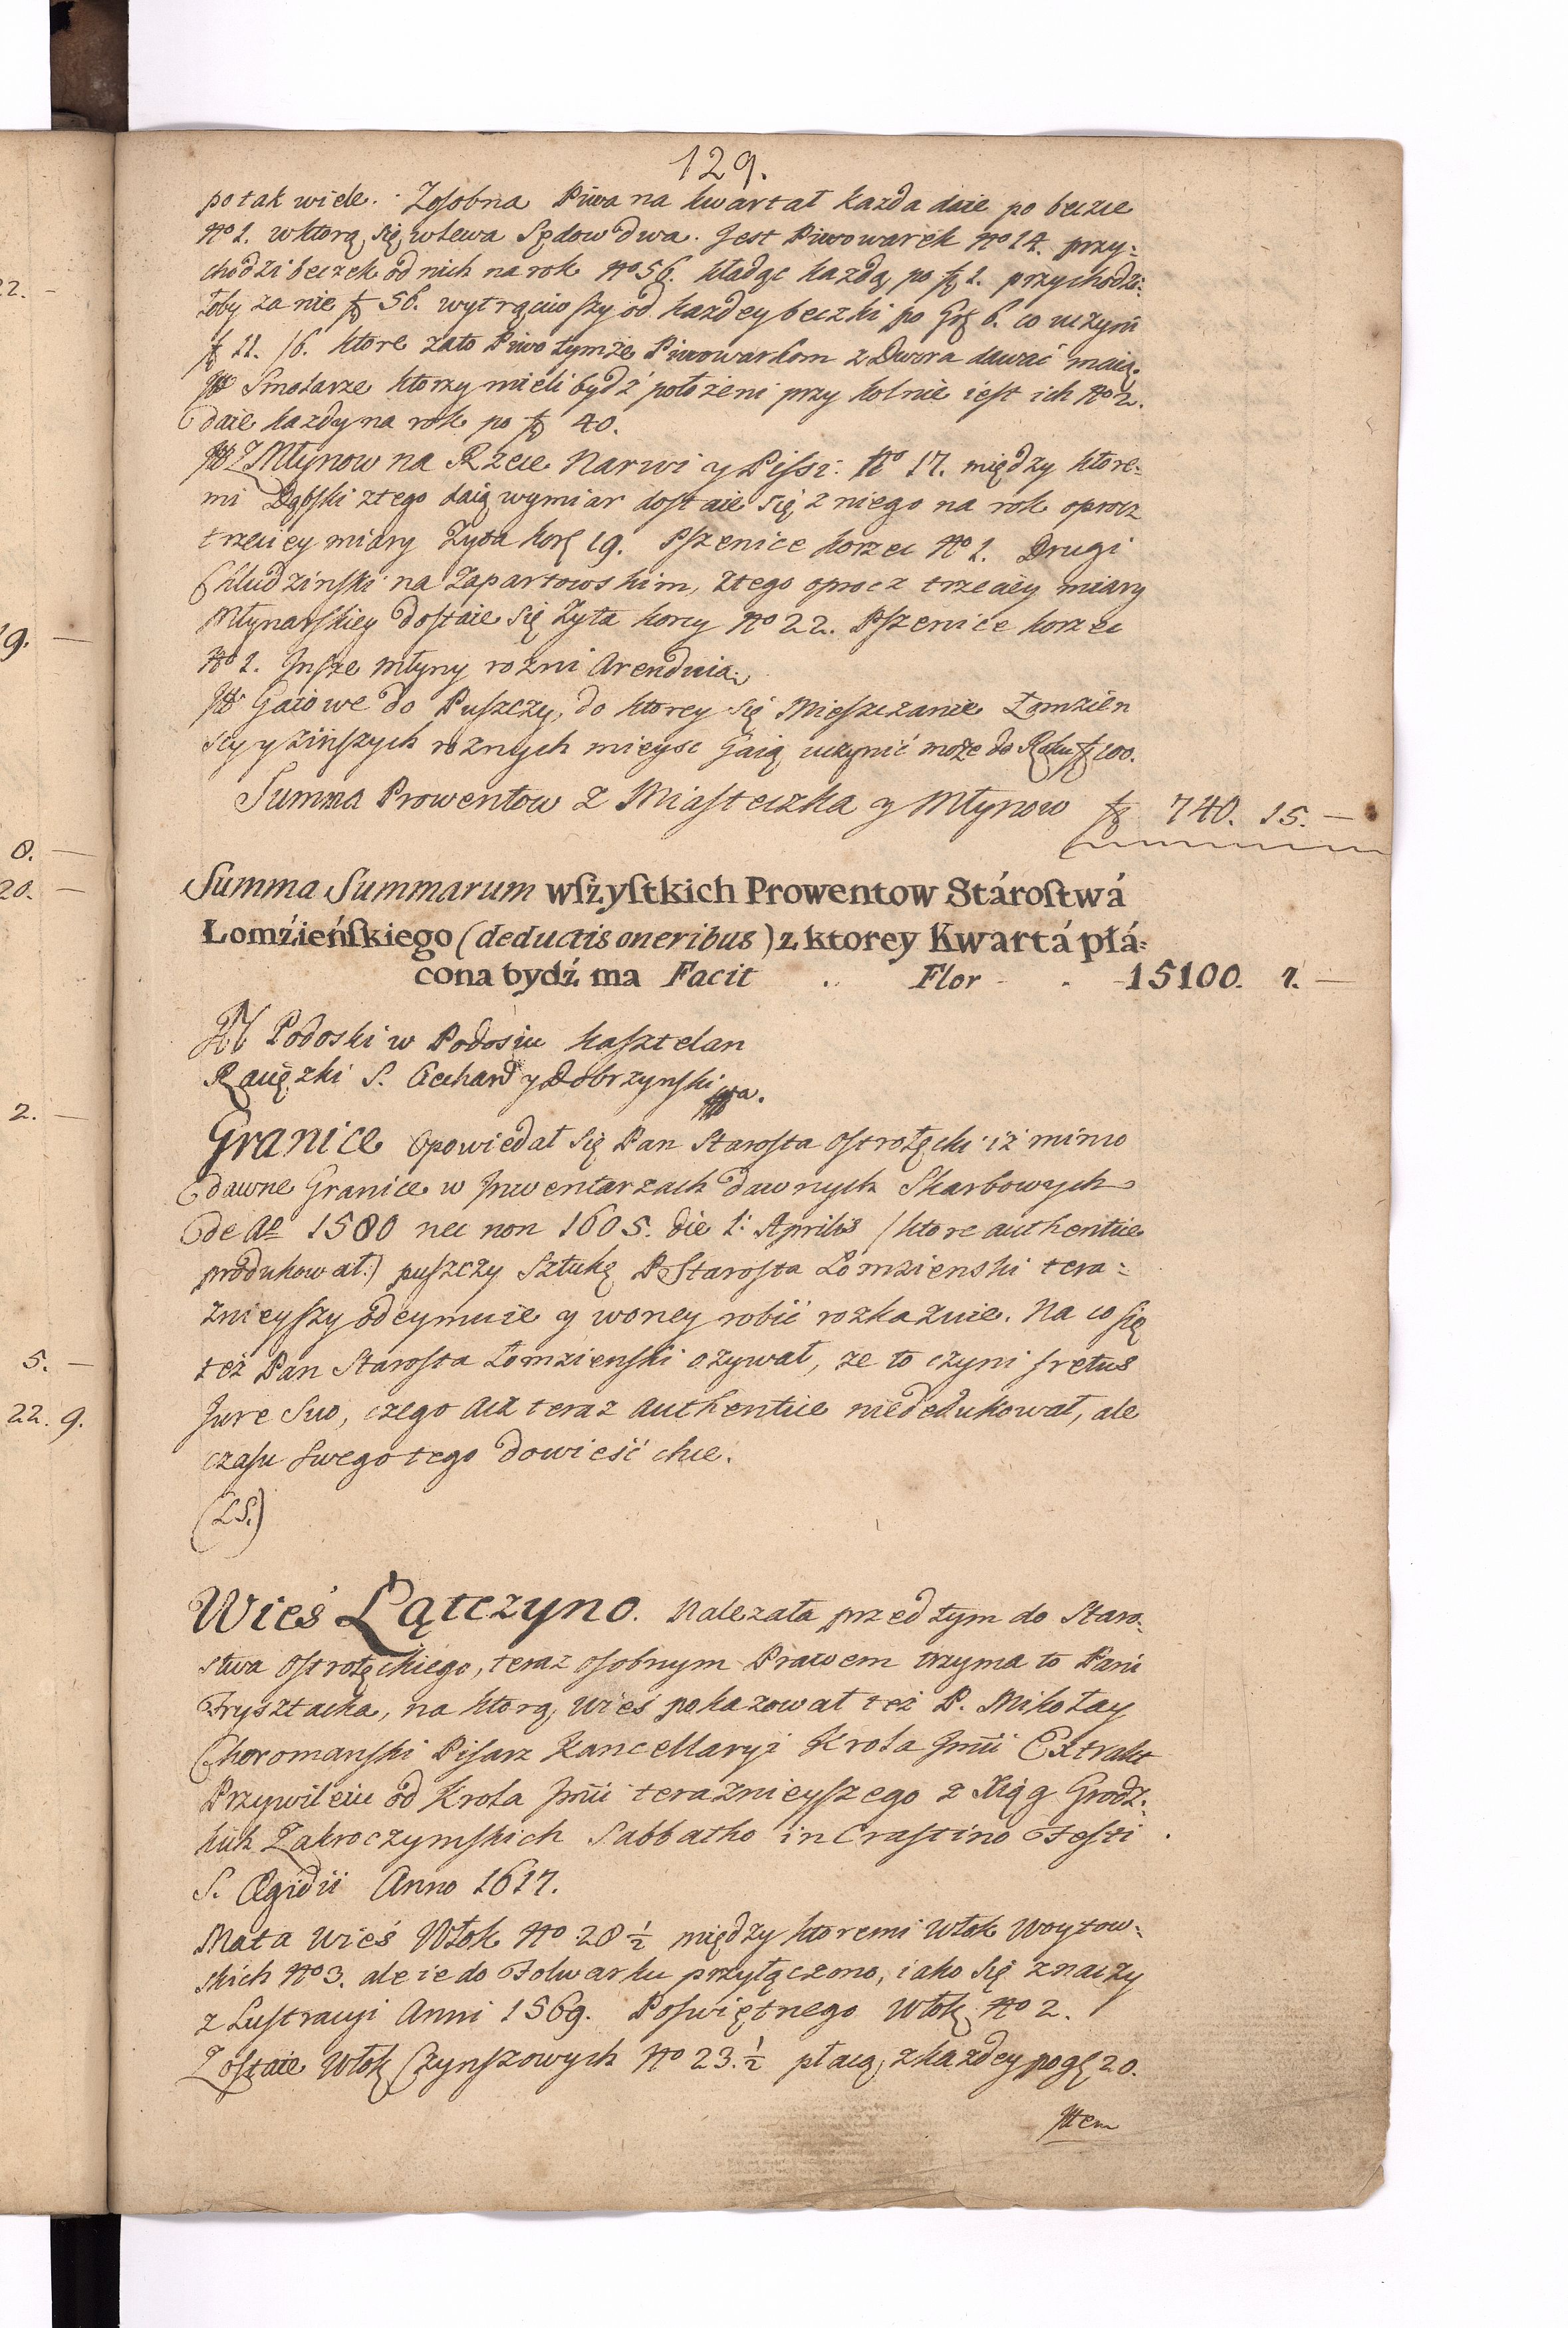 129.
potak wiele. Zosobna Piwa na kwartał kazda daie po beczce
No 1. wktorą się wlewa Sędow dwa. Jest Piwowarek No 14. przy=
chodzi beczek od nich na rok No 56. kładąc kazdą po f 1. przychodzi=
łoby za nie f 56. wytrąciwszy od kazdey beczki po Gr 6. co uczyni
f 11. /6. ktore zato Piwo tymże Piwowarkom z Dwora dawać maią.
It Smolarze ktorzy mieli bydź położeni przy kolnie iest ich No 2.
daie kazdy na rok po f 40.
It Z Młynow na Rzece Narwi y Pissi: No 17. między ktore=
mi Dąbski ztego daią wymiar dostaie się z niego na rok oprocz
trzeciey miary Zyta kor 19. Pszenice korzec No 1. Drugi
Chludzinski na Zapartowskim, ztego oprocz trzeciey miary
Młynarskiey dostaie się Zyta korcy No 22. Pszenice korzec
No 1. Insze młyny rozni Arenduią.
It Gaiowe do Puszczy, do ktorey się Mieszczanie Łomzień
scy y zinszych roznych mieysc Gaią uczynić może do Roku f 100.
Summa Prowentow z Miasteczka y Młynow f 740. 15. —
Summa Summarum wszystkich Prowentow Stárostwá
Łomźieńskiego (deductis oneribus) z ktorey Kwartá płá=
cona bydź ma Facit .. Flor - . -15100. 1. —
Podoski w Podosiu kasztelan
Raciązki S. Ciechan y Dobrzynski
Granice Opowiedał się Pan Starosta Ostrołęcki iż mimo
dawne Granice w Inwentarzach dawnych Skarbowych
de Ao 1580 nec non 1605. die 1: Aprilis /ktore authentice
produkował:) puszczy Sztukę P Starosta Łomzienski tera=
znieyszy odeymuie y woney robić rozkazuie. Na co się
też Pan Starosta Łomzienski ozywał, ze to czyni fretus
Jure Suo, czego acz teraz authentice niededukował, ale
czasu swego tego dowieść chce.
(LS.)
Wieś Łątczyno. Nalezała przed tym do Staro=
stwa Ostrołęckiego, teraz osobnym Prawem trzyma to Pani
Frysztacka, na ktorą wieś pokazował też P. Mikołay
Choromanski Pisarz Kancellaryi Krola Jmći Extrakt
Przywileiu od Krola Jmći teraznieyszego z Xiąg Grodz=
kich Zakroczymskich Sabbatho in Crastino Festi
S. Ægidii Anno 1617.
Mała wieś Włok No 28 ½ między ktoremi Włok Woytow=
skich No 3. ale ie do Folwarku przyłączono, iako się znaczy
z Lustracyi Anni 1569. Poswiętnego Włok No 2.
Zostaie Włok Czynszowych No 23. ½ płacą zkazdey po g 20.
Item
22. —
19. —
8. —
20. —
2. —
5. —
22. 9.